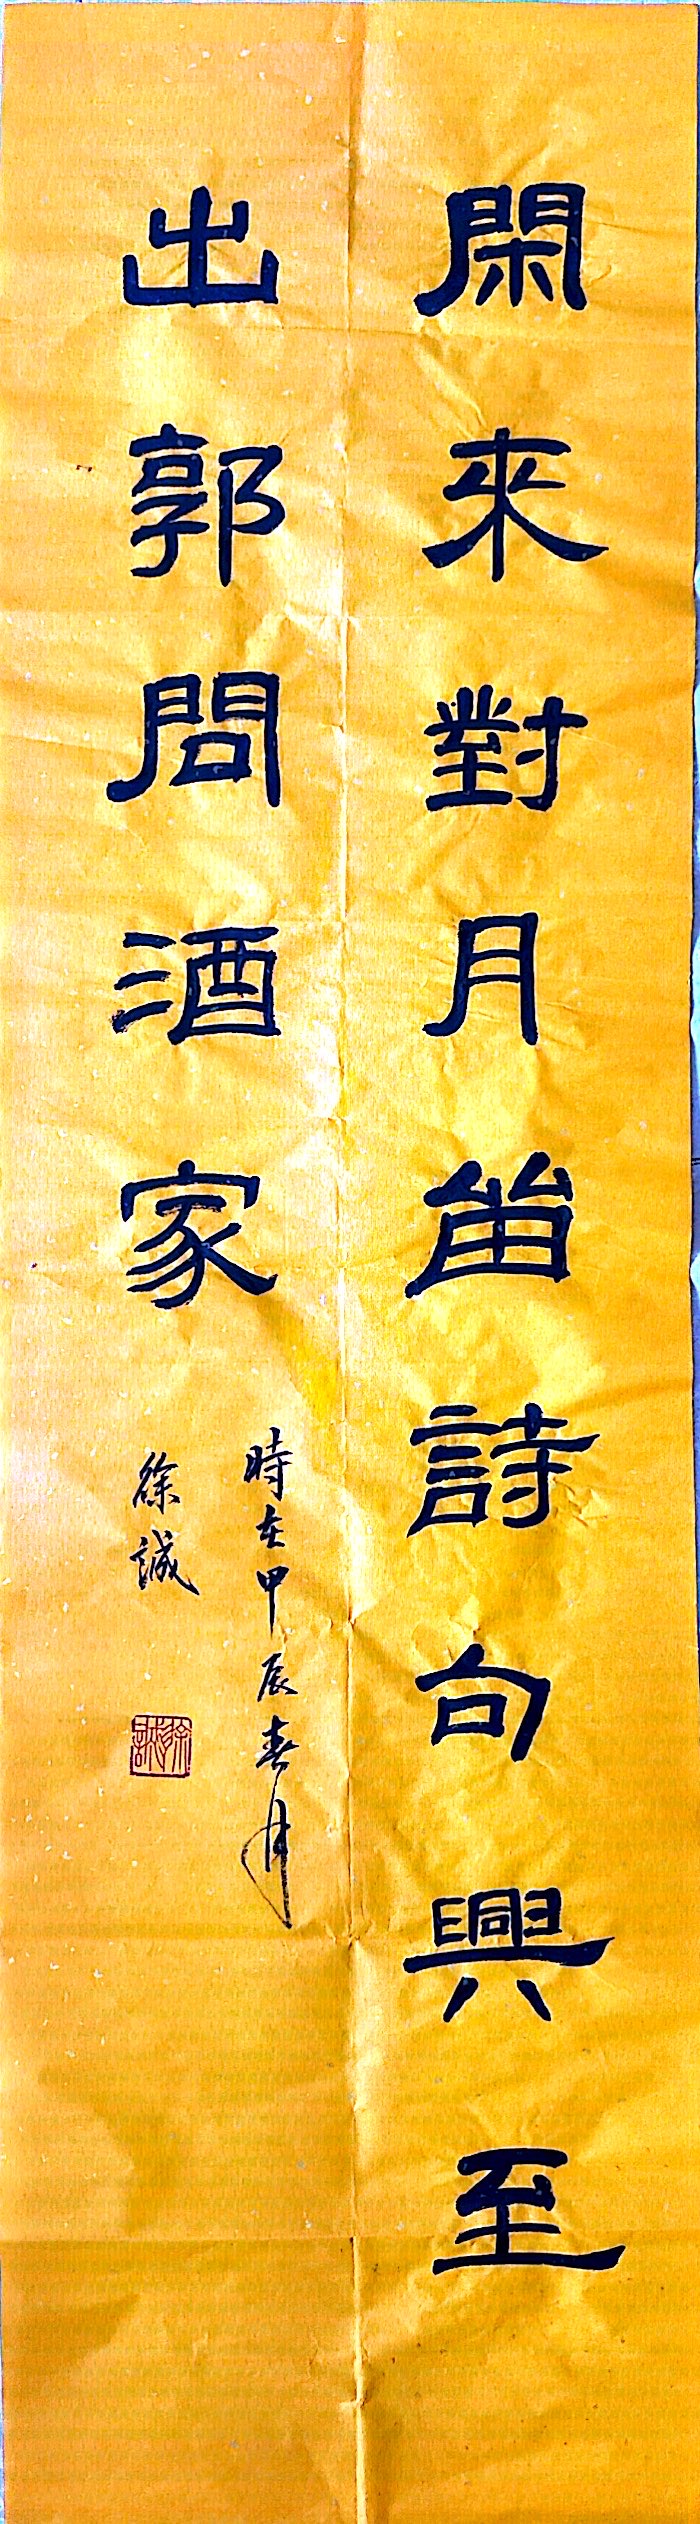 閑來對月留詩句興至
出郭問酒家
時在甲辰春月
徐誠
徐誠